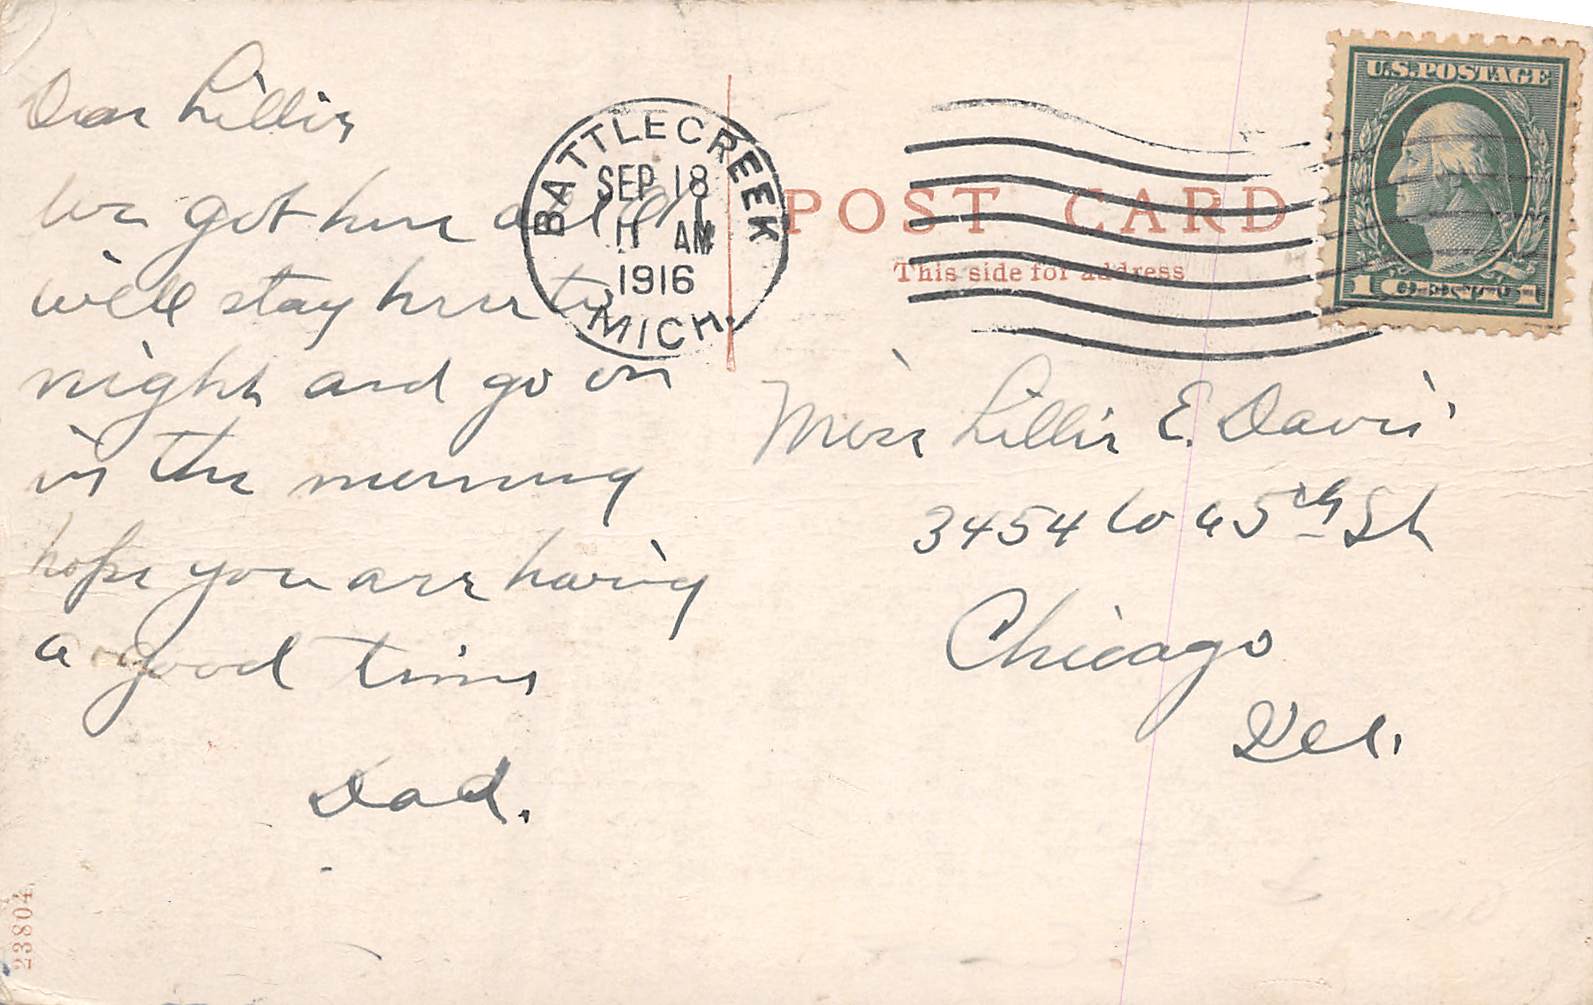 Dear Lillie
We got here and
will stay here to
night and go on
in the morning
hope you are having
a good time
Dad.
BATTLE CREEK
SEP 18
11 AM
1916
MICH.
POST CARD
This side for address
U.S. POSTAGE
1 1
Miss Lillie E. Davis
3454 W 65th St
Chicago
Ill.
23804